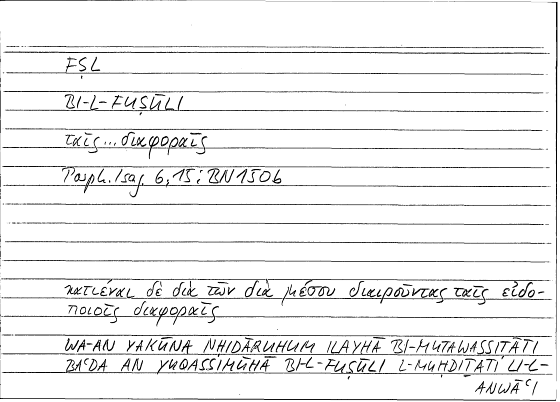 FṢL
BI-L-FUṢŪLI
ταῖς...διαφοραῖς
Porph. Isag. 6,15; BN150b
κατιέναι δὲ διὰ τῶν διὰ μέσου διαιροῦντας ταῖς εἰδο-
ποιοῖς διαφοραῖς
WA-AN YAKŪNA NḤIDĀRUHUM ILAYHĀ BI-MUTAWASSIṬĀTI
BAʿDA AN YUQASSIMŪHĀ BI-L-FUṢŪLI L-MUḤDIṮATI LI-L-
ANWĀʿI